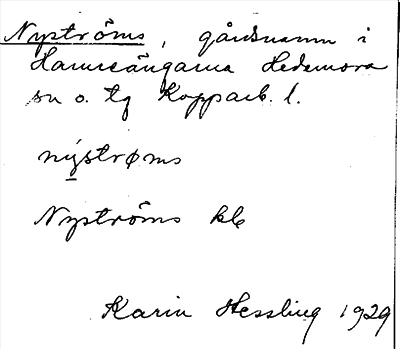 Nyströms, gårdsnamn i
Hamreängarna Hedemora
sn o. tg Kopparb. l.
nystrøms
Nyströms kb
Karin Hessling 1929